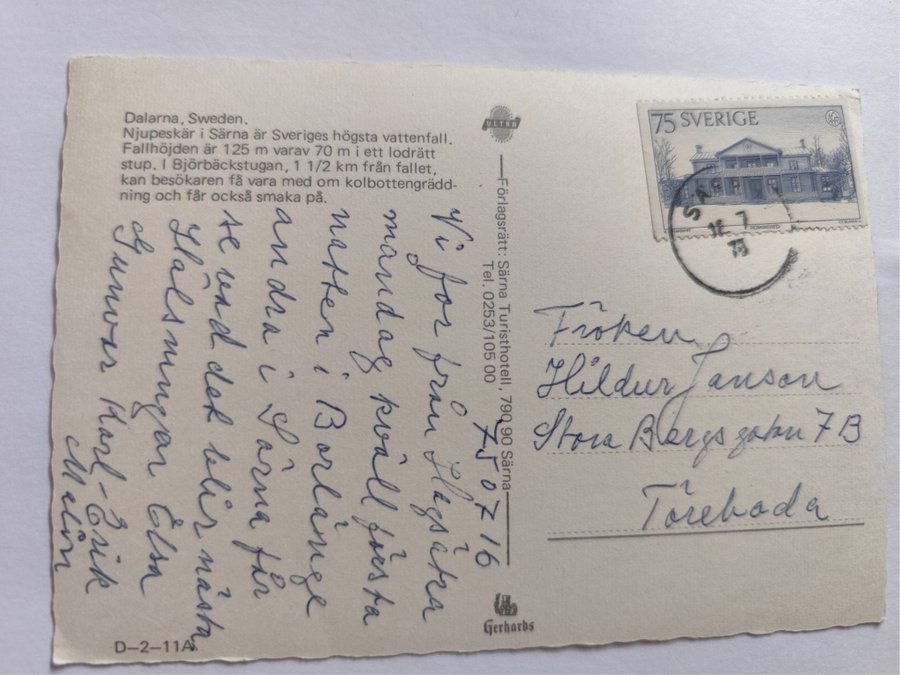 Dalarna, Sweden.
Njupeskär i Särna är Sveriges högsta vattenfall.
Fallhöjden är 125 m varav 70 m i ett lodrätt
stup. I Björbäckstugan, 1 1/2 km från fallet,
kan besökaren få vara med om kolbottengrädd-
ning och får också smaka på.
75 07 16
Vi for från Hagsätra
måndag kväll första
natten i Borlänge
andra i Särna får
se vad det blir nästa,
Hälsningar Elsa
Gunvor Karl-Erik
Malin
D-2-11A
ULTRA
Förlagsrätt: Särna Turisthotell, 790 90 Särna
Tel. 0253/105 00
Gerhards
75 SVERIGE
7
75
Fröken
Hildur Janson
Stora Bergsgatan 7B
Töreboda